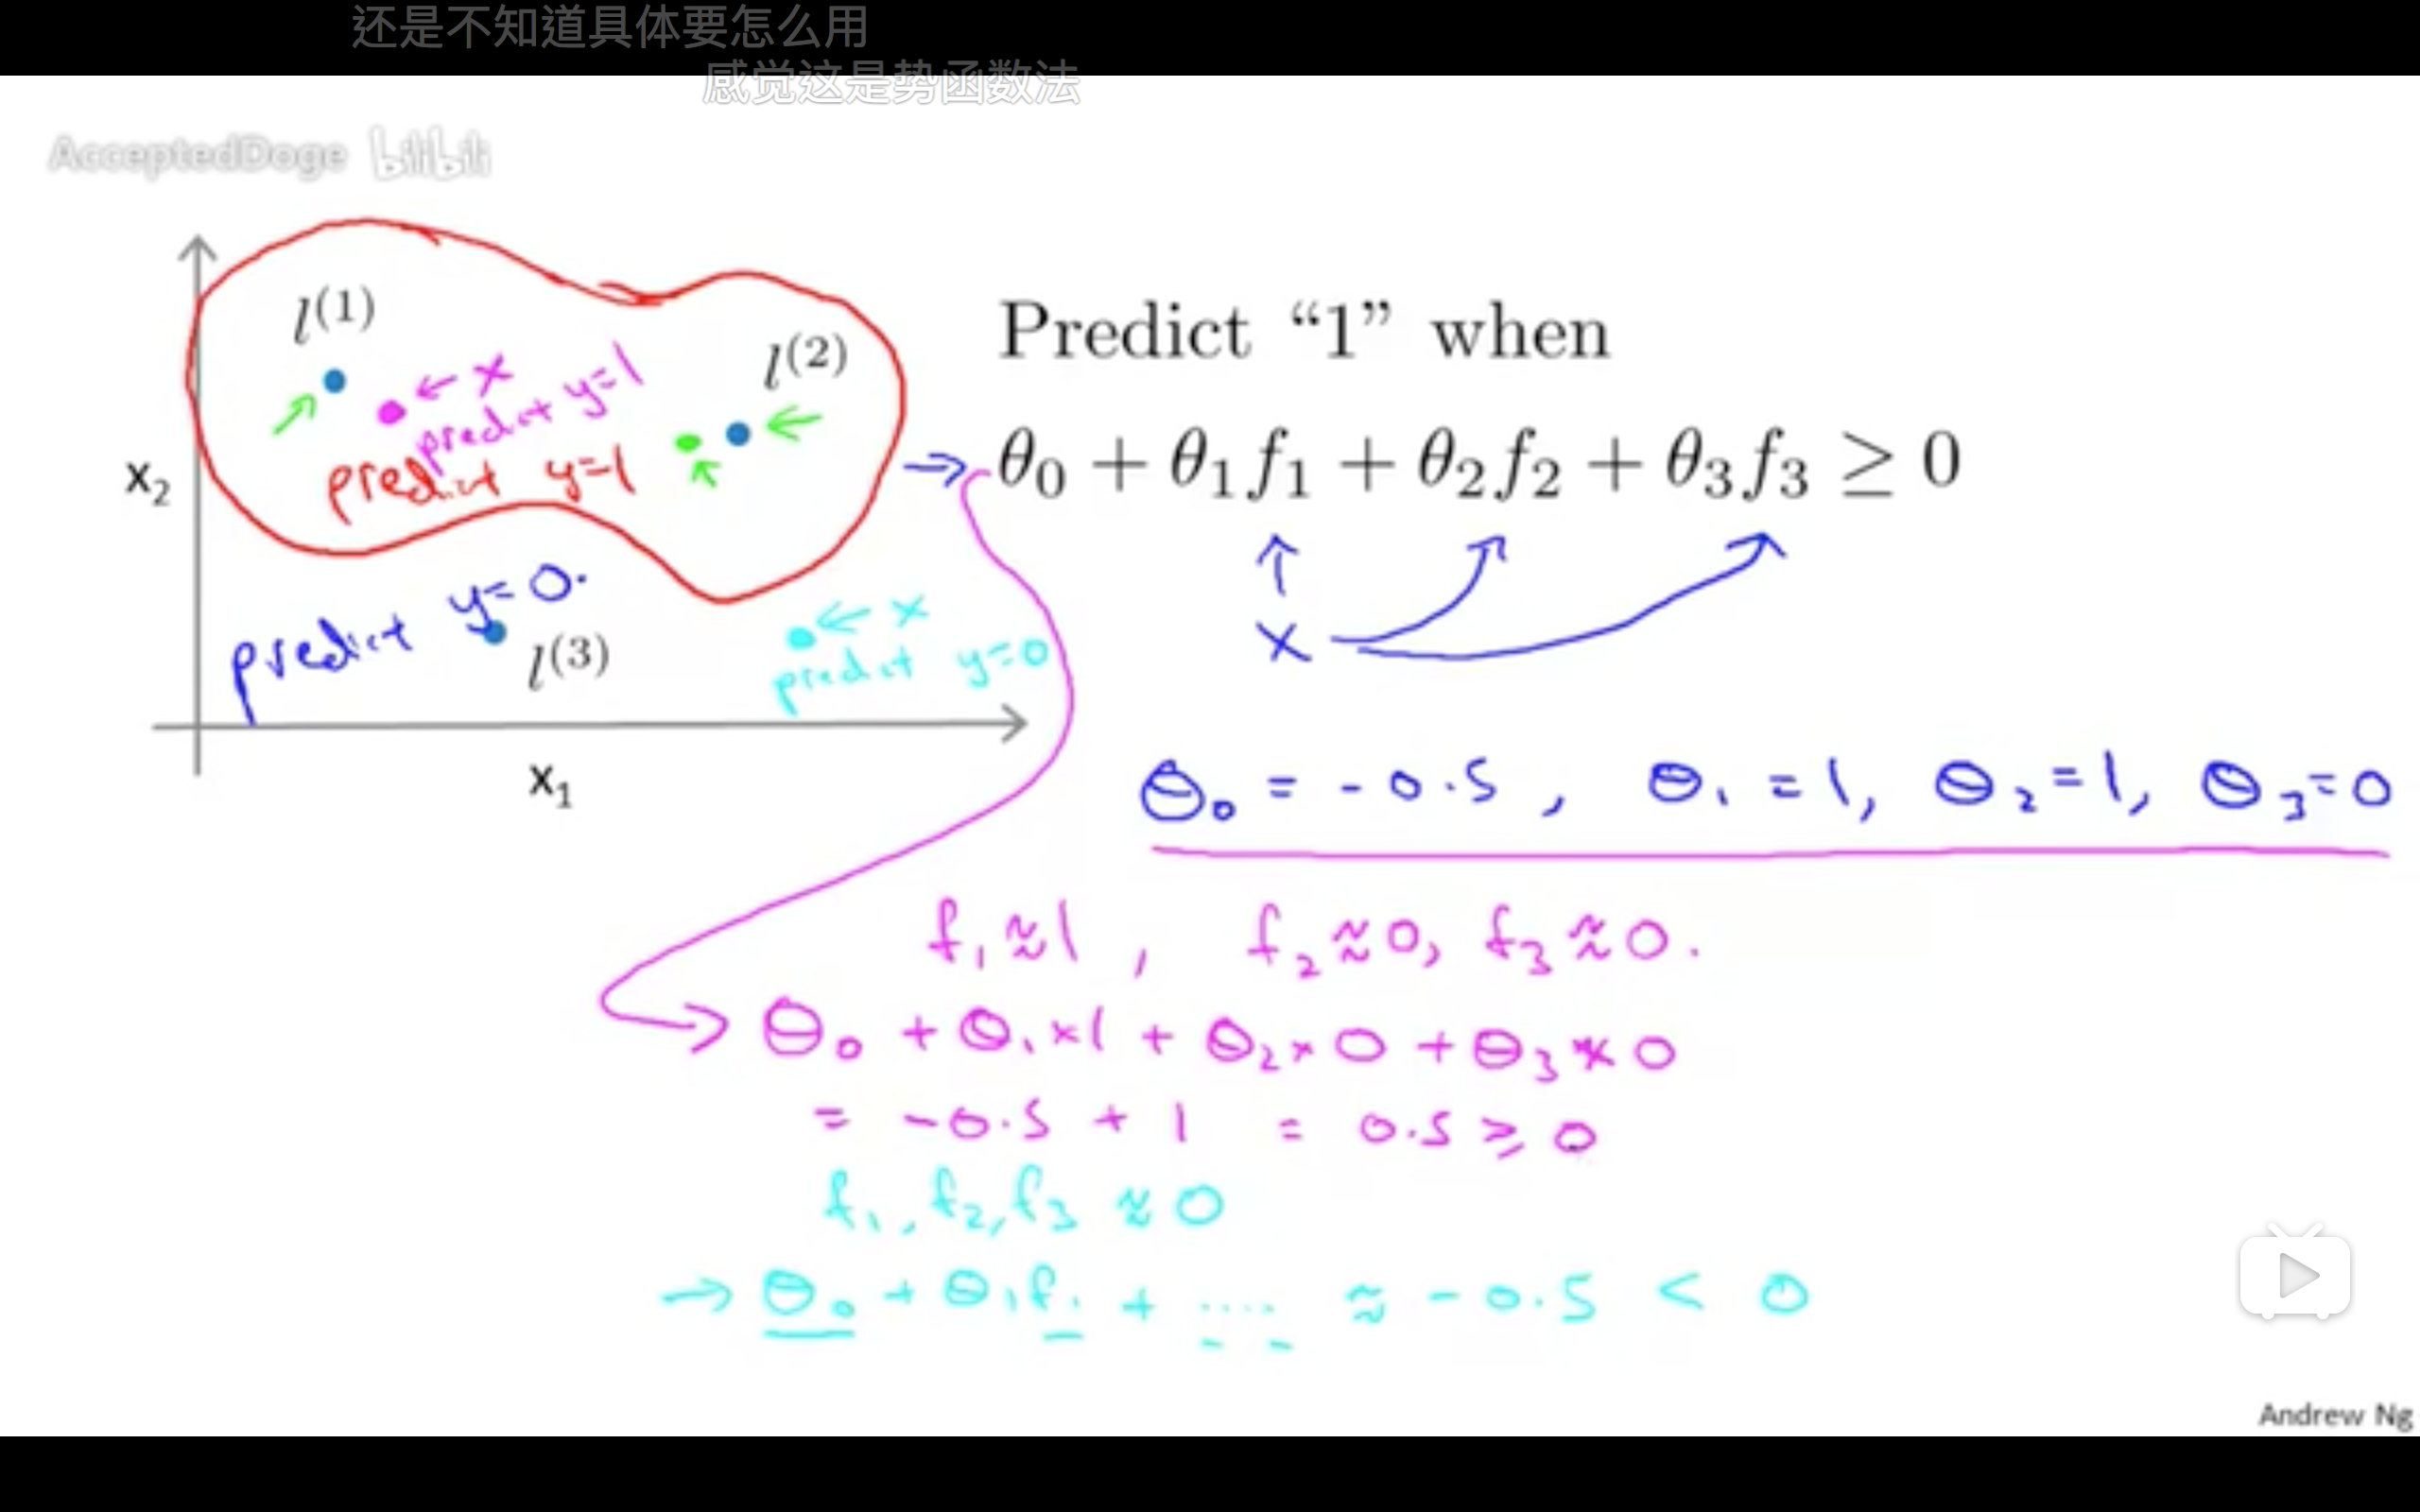 还是不知道具体要怎么用
感觉这是势函数法
AcceptedDoge bilibili
l^(1)
← x
predict y=1
l^(2)
predict y=1
x₂
predict y=0.
l^(3)
← x
predict y=0
x₁
Predict “1” when
→ θ₀ + θ₁f₁ + θ₂f₂ + θ₃f₃ ≥ 0
x
θ₀ = -0.5, θ₁ = 1, θ₂ = 1, θ₃ = 0
f₁ ≈ 1, f₂ ≈ 0, f₃ ≈ 0.
→ θ₀ + θ₁×1 + θ₂×0 + θ₃×0
= -0.5 + 1 = 0.5 ≥ 0
f₁, f₂, f₃ ≈ 0
→ θ₀ + θ₁f₁ + .... ≈ -0.5 < 0
Andrew Ng